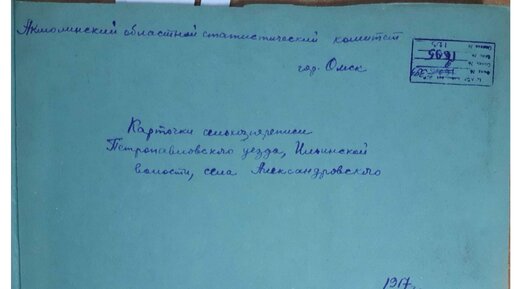 Акмолинский областной статистический комитет
гор. Омск
Карточки сельхозпереписи
Петропавловского уезда, Ильинской
волости, села Александровского
1917.